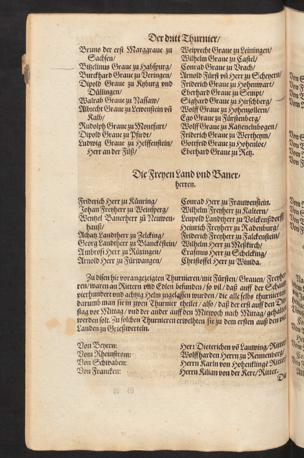 Der dritt Thurnier/
Bruno der erst Marggraue zu
Sachsen/
Burckhard Graue zu Veringen/
Dipold Graue zu Kyburg vnd
Düllingen/
Walrab Graue zu Nassaw/
Albrecht Graue zu Lewenstein vñ
Kalb/
Rudolph Graue zu Montfurt/
Dipold Graue zu Pfirdt/
Ludwig Graue zu Helffenstein/
Herr an der Filß/
Weiprecht Graue zu Leiningen/
Wilhelm Graue zu Castel/
Conrad Graue zu Vrach/
Arnold Fürst vñ Herr zu Scheyern/
Friderich Graue zu Hohenwart/
Gerhard Graue zu Sempt/
Sighard Graue zu Hirschberg/
Wolff Graue zu Hohenzollern/
Ego Graue zu Fürstenberg/
Wolff Graue zu Katzenelnbogen/
Friderich Graue zu Wertheym/
Gottfrid Graue zu Hohenloe/
Eberhard Graue zu Retz.
Die Freyen Land vnd Baner-
herren.
Friderich Herr zu Künring/
Johan Freyherr zu Weinsperg/
Wentzel Banerherr zu Neuwen-
hauß/
Achatz Landtherr zu Zelcking/
Georg Landtherr zu Blanckestein/
Ambrosi Herr zu Rötzingen/
Arnold Herr zu Fürwangen/
Conrad Herr zu Frauwenstein.
Wilhelm Freyherr zu Raitern/
Leupold Landtherr zu Volckenßdorff
Heinrich Freyherr zu Radenburg/
Friderich Landtherr zu Falckenstein/
Wilhelm Herr zu Meßkirch/
Erasmus Herr zu Schelcking/
Christoffel Herr zu Winda.
Zu disen hie vorangezeigten Thurnieren/mit Fürsten/Grauen/Freyher
ren/waren an Rittern vnd Edlen befunden/so vil/daß auff der Schaw
vierhundert vnd achtzig Helm zugelassen wurden/die alle selbs thurnierten/
darumb man sie in zwen Thurnier theilet/also/daß der erst auff den Din
stag vor Mittag/vnd der ander auff den Mitwoch nach Mittag/gehalten
worden solt. Zu solchen Thurnieren erwelheten sie zu dem ersten auß den vier
Landen zu Grießwerteln.
Von Beyern:
Vom Rheinstrom:
Von Schwaben:
Von Francken:
Herr Dieterichen võ Lauwing/Ritter.
Wolffharden Herrn zu Rennenberg/
Herrn Karln von Hohenflingē Ritter.
Herrn Kilian von der Kere/Ritter.
Die